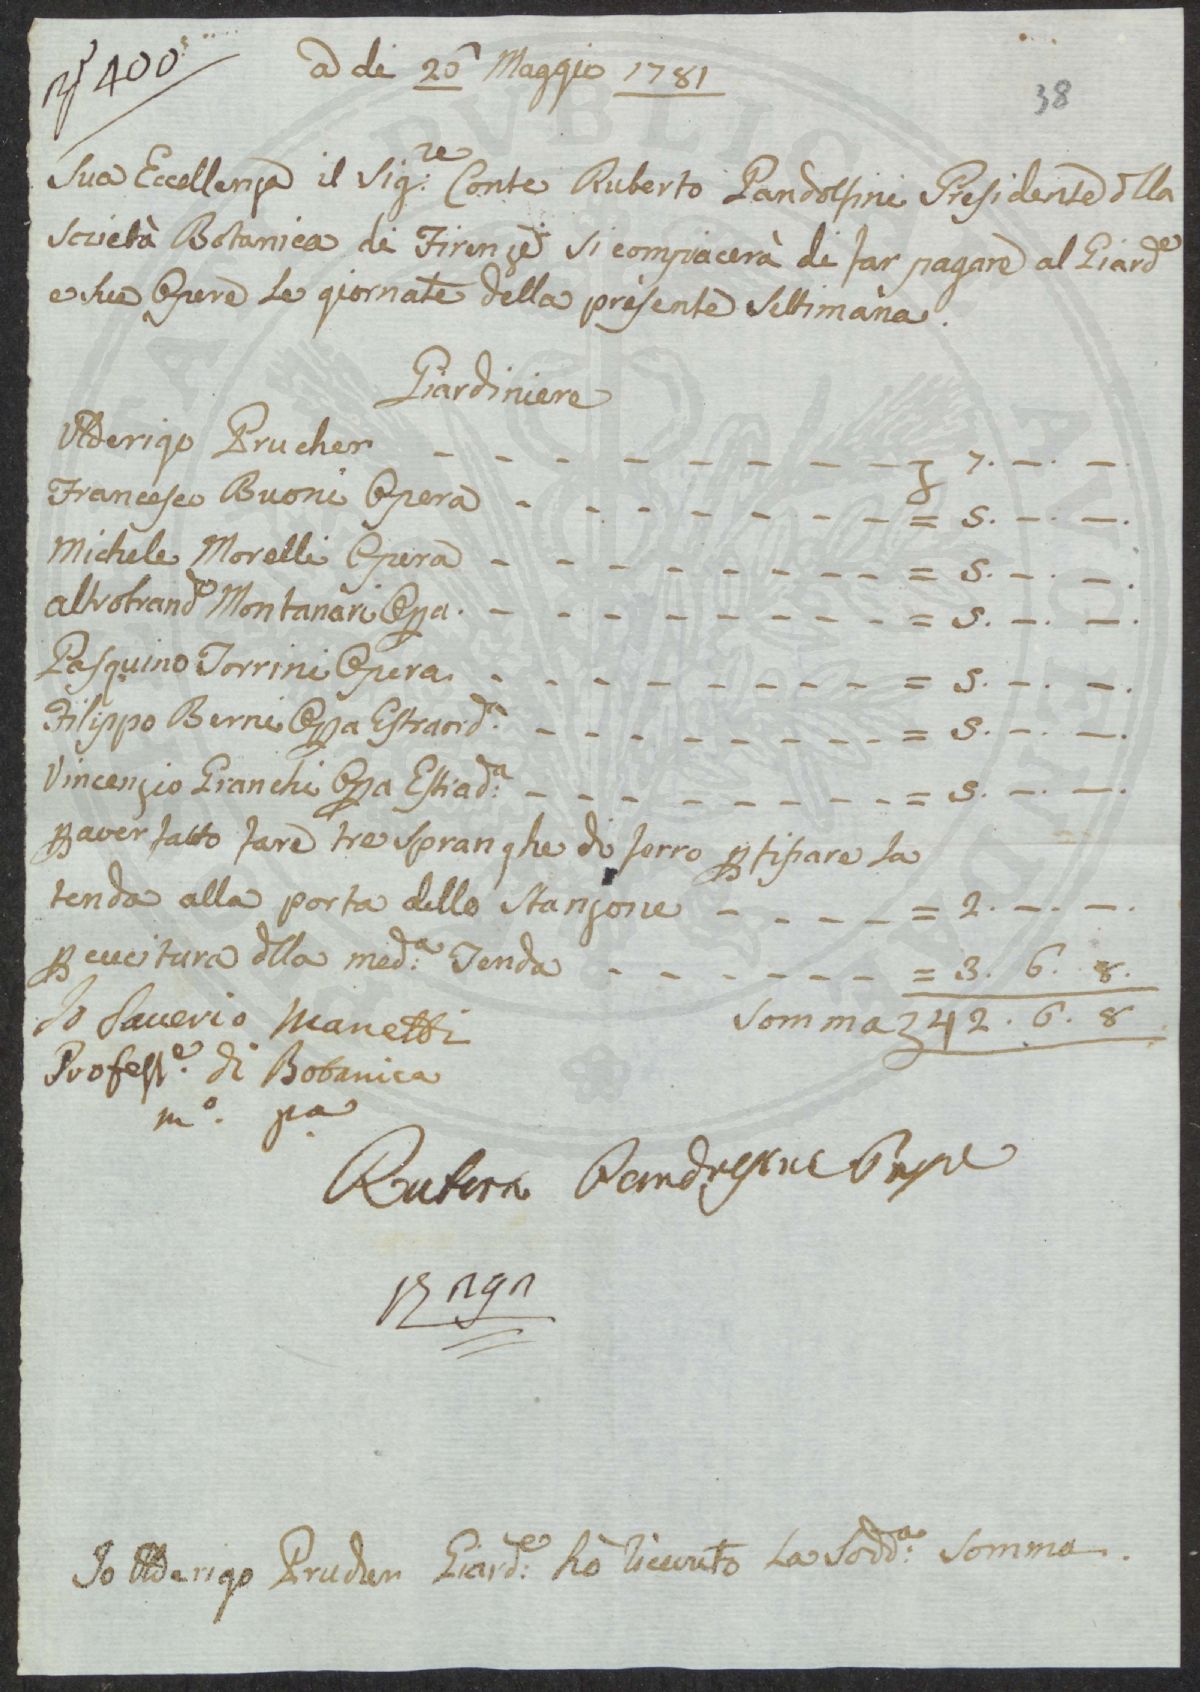 N° 400
a di 20 Maggio 1781
38
Sua Eccellenza il Sig:re Conte Ruberto Pandolfini Presidente dlla
Società Botanica di Firenze si compiacerà di far pagare al Giard:e
e sue Opere le giornate della presente Settimana.
Giardiniere
Ulderigo Prucher - - - - - - - - - - 7. —. —.
Francesco Buoni Opera - - - - - - - - = 5. —. —.
Michele Morelli Opera - - - - - - - - - = 5. —. —.
altrobrand:o Montanari Oppa. - - - - - - - - = 5. —. —.
Pasquino Torrini Opera. - - - - - - - - - = 5. —. —.
Filippo Berni Oppa Estraord:a - - - - - - - - = 5. —. —.
Vincenzio Granchi Oppa Estrad:a - - - - - - - - = 5. —. —.
p aver fatto fare tre spranghe di ferro p fissare la
tenda alla porta dello Stanzone - - - - = 2. —. —.
p cucitura dlla med:a Tenda - - - - - - - = 3. 6. 8.
Somma 42. 6. 8
Io Saverio Manetti
Profess:e di Botanica
m:o p:a
Ruberto Pandolfini Pres:e
Io Ulderigo Prucher Giard:e hò ricevuto la Sodd:a Somma.